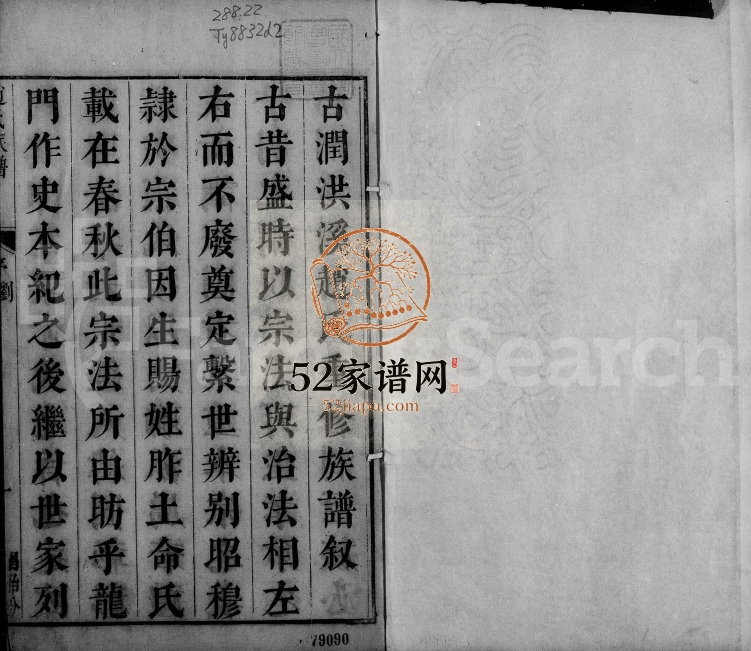 288.22
Ty8832d2
古潤洪溪趙氏重修族譜叙
古昔盛時以宗法與治法相左
右而不廢奠定繫世辨别昭穆
隸於宗伯因生賜姓胙土命氏
載在春秋此宗法所由昉乎龍
門作史本紀之後繼以世家列
氏族譜
序
52家谱网
52jiapu.com
Search
79090